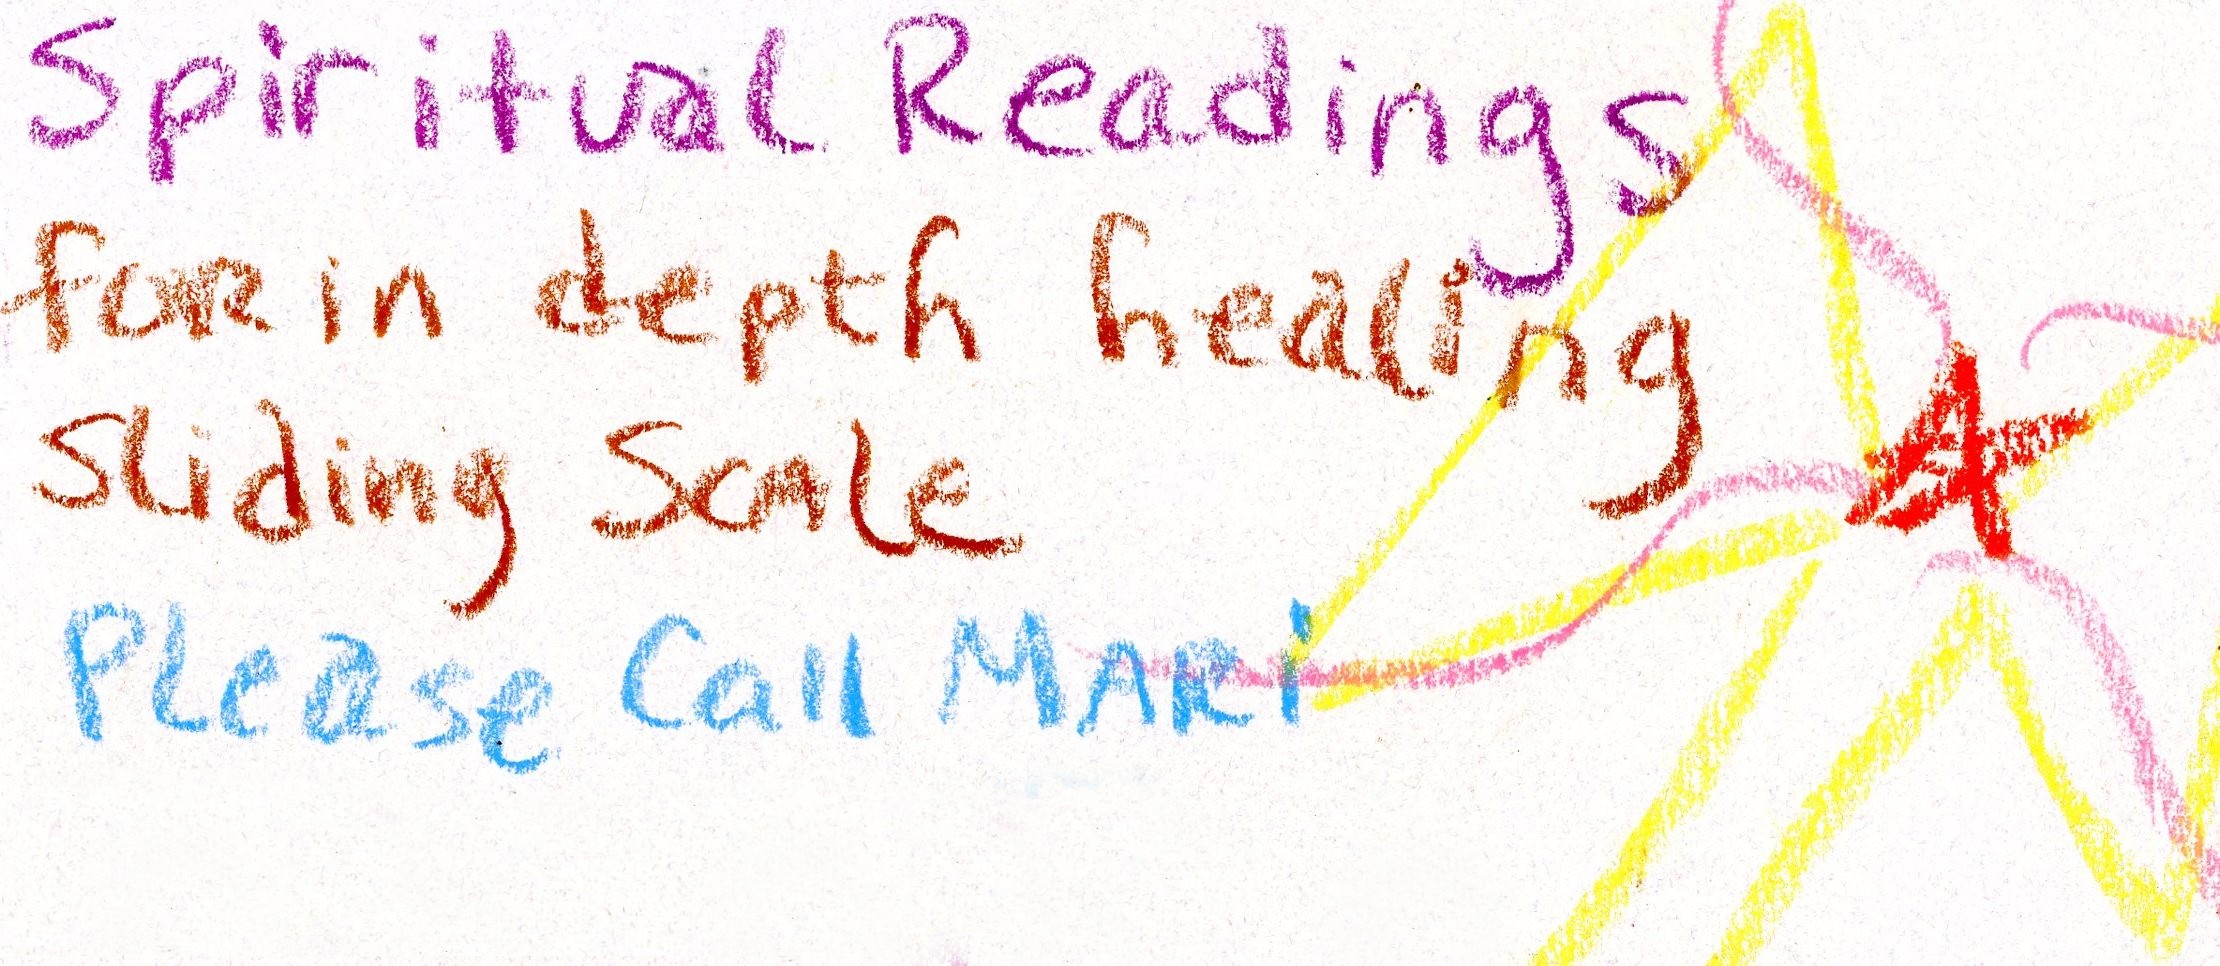 Spiritual Readings
for in depth healing
Sliding Scale
Please Call MARI